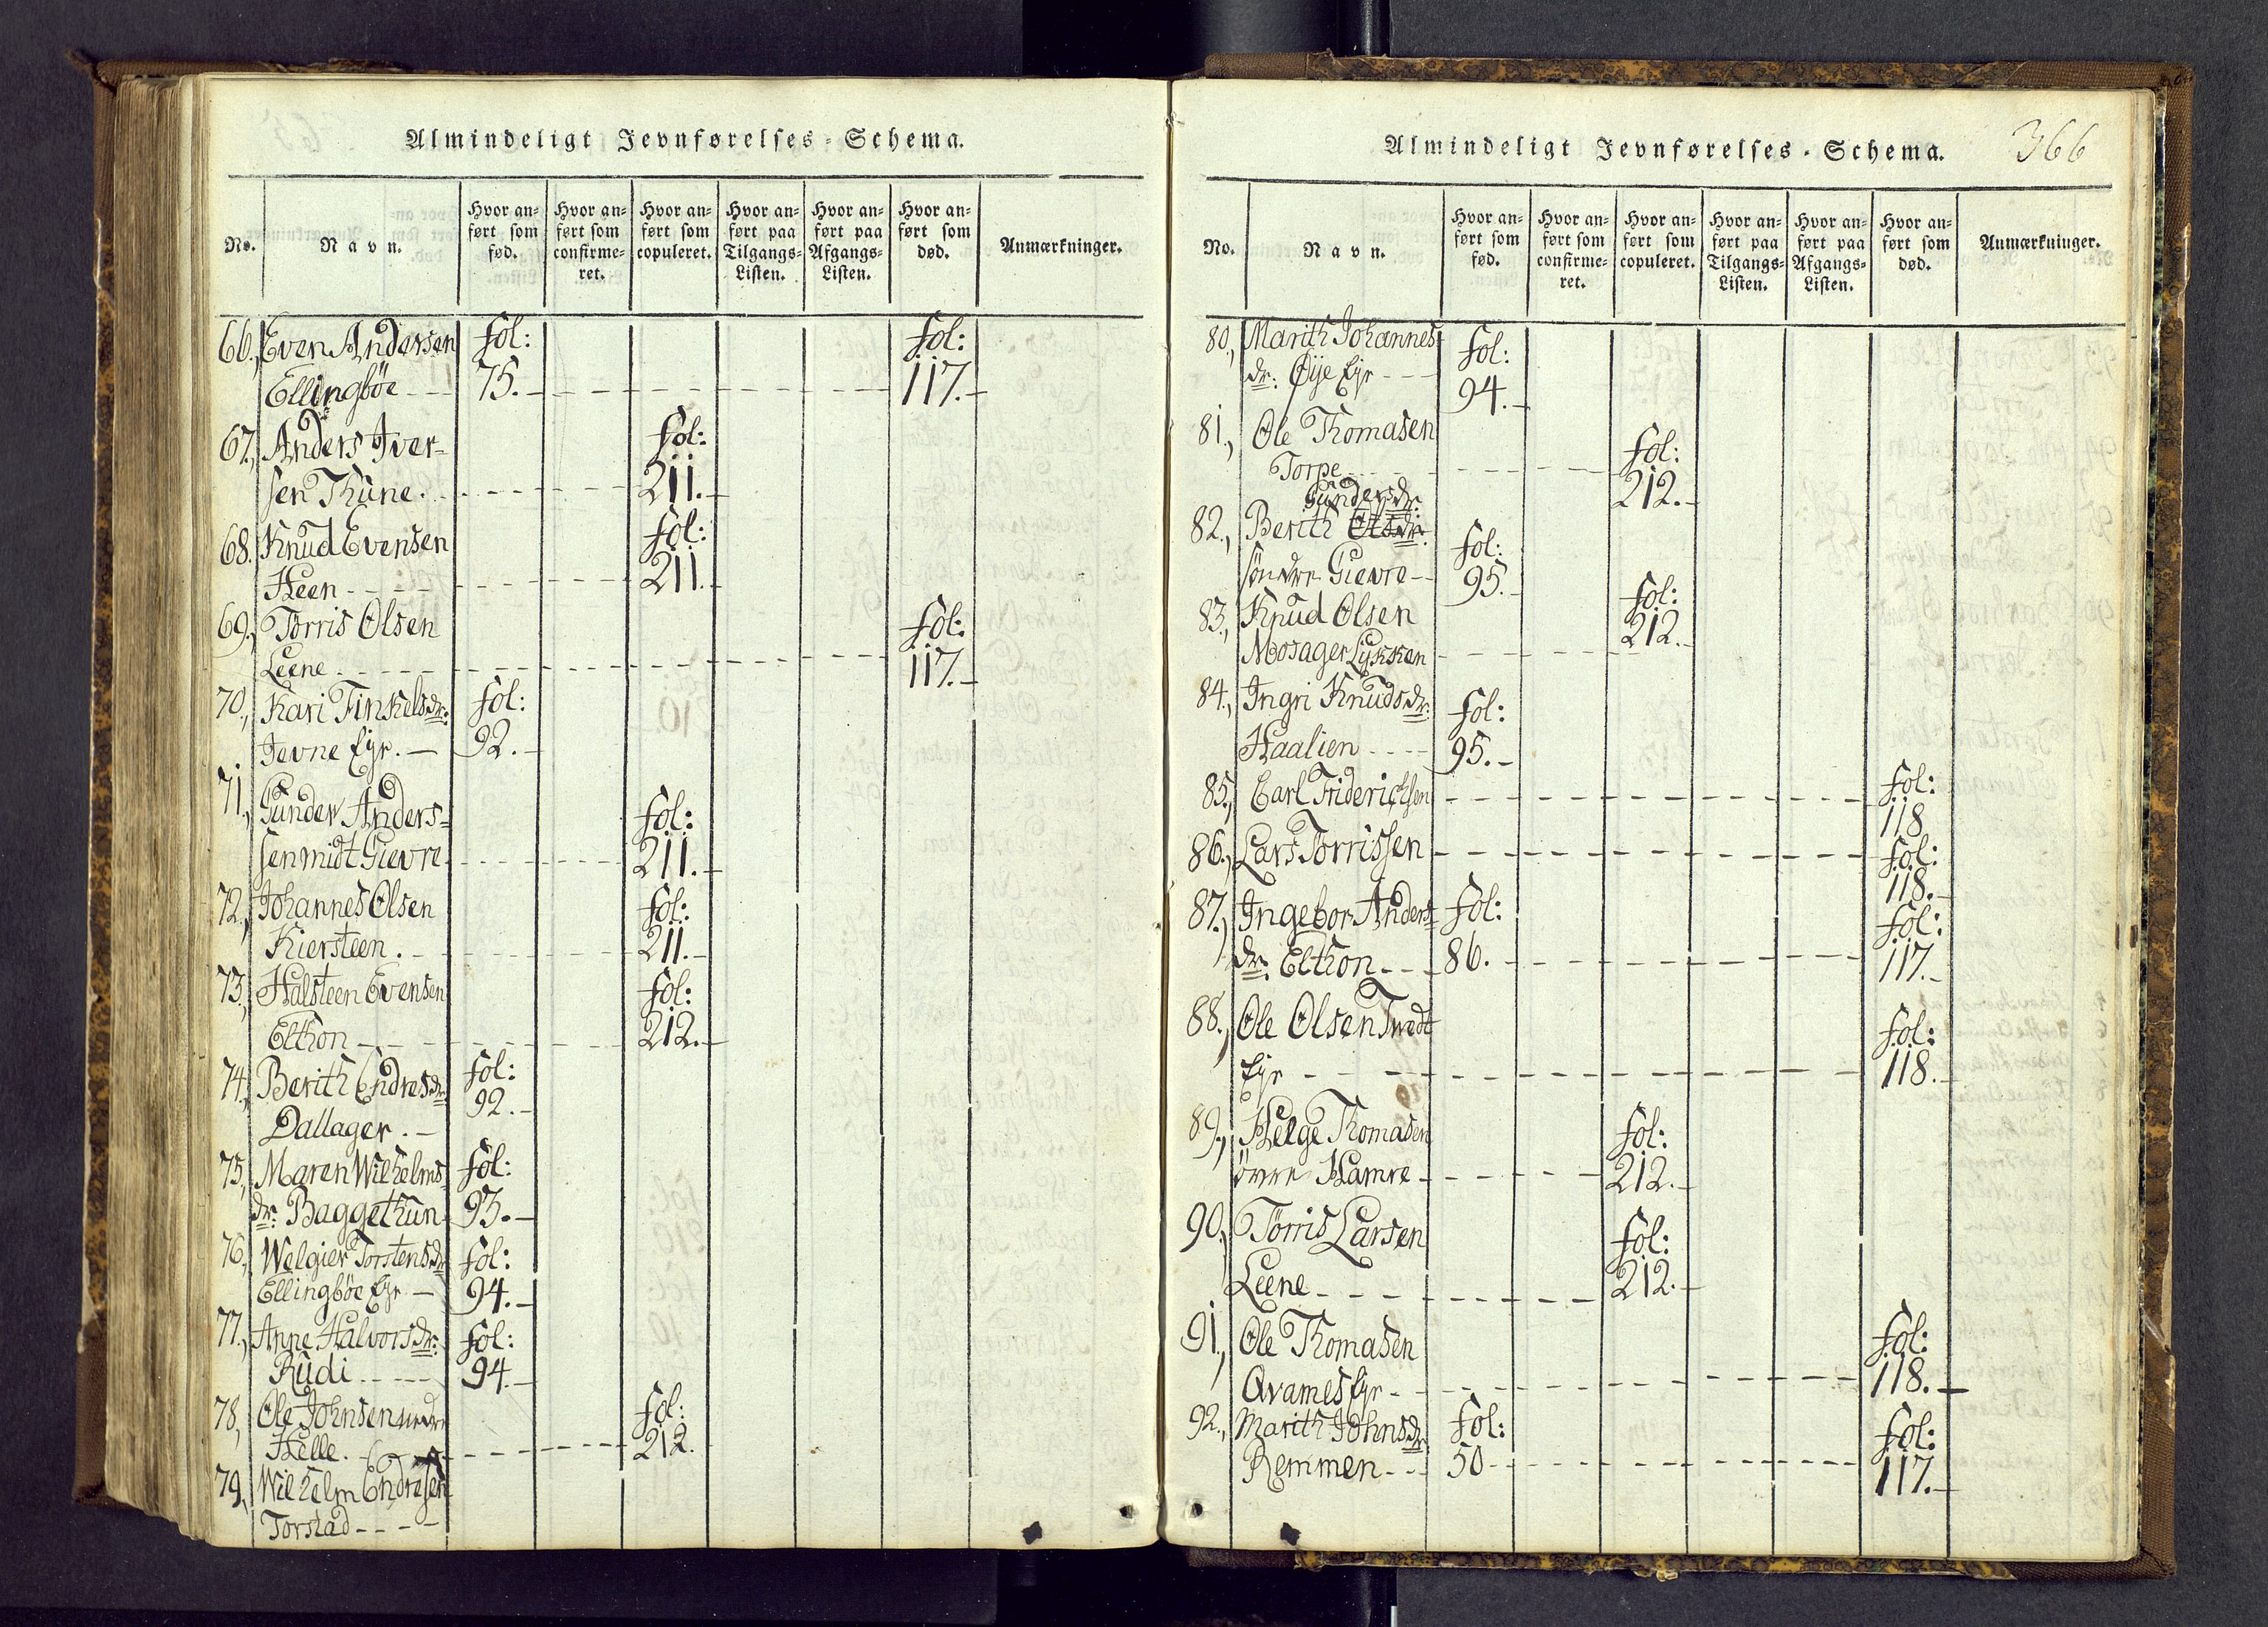 Almindeligt Jevnførelses-Schema.
No. Navn. Hvor anført som fød. Hvor anført som confirmeret. Hvor anført som copuleret. Hvor anført paa Tilgangs-Listen. Hvor anført paa Afgangs-Listen. Hvor anført som død. Anmærkninger.
66., Even Andersen fol: fol:
Ellingbøe 75. 117.
67., Anders Iver- fol:
sen Thune. 211.
68. Knud Evensen fol:
Heen 211.
69., Torris Olsen fol:
Leene 117.
70., Kari Finkelsdr: fol:
Jevne Eyr. 92.
71., Gunder Anders= fol:
sen midt Gievre 211.
72., Johannes Olsen fol:
Kiersteen. 211.
73., Halsteen Evensen fol:
Elthon 212.
74., Berith Endresdr: fol:
Dallager. 92.
75., Maren Wilhelms- fol:
dr: Baggethun 93.
76., Welgier Torstensdr fol:
Ellingbøe Eyr 94.
77., Anne Halvorsdr: fol:
Rudi 94.
78., Ole Johnsen nedre fol:
Helle. 212.
79., Wilhelm Endresen
Torstad
Almindeligt Jevnførelses-Schema. 366
No. Navn. Hvor anført som fød. Hvor anført som confirmeret. Hvor anført som copuleret. Hvor anført paa Tilgangs-Listen. Hvor anført paa Afgangs-Listen. Hvor anført som død. Anmærkninger.
80., Marith Johannes- fol:
dr: Øye Eyr 94.
81., Ole Thomasen fol:
Torpe 212.
Gundersdr:
82., Berith Olsdr: fol:
søndre Gievre 95.
83., Knud Olsen fol:
Mosager Lykken 212.
84., Ingri Knudsdr: fol:
Haalien 95.
85., Carl Friderichsen fol:
118
86., Lars Torrissen fol:
118.
87., Ingebor Anders= fol: fol:
dr: Elthon 86. 117.
88., Ole Olsen Twedt fol:
Eyr 118.
89., Helge Thomasen fol:
övre Hamre 212.
90., Torris Larsen fol:
Leene 212.
91., Ole Thomasen fol:
Qvames Eyr 118.
92., Marith Johnsdr: fol: fol:
Remmen 50 117.